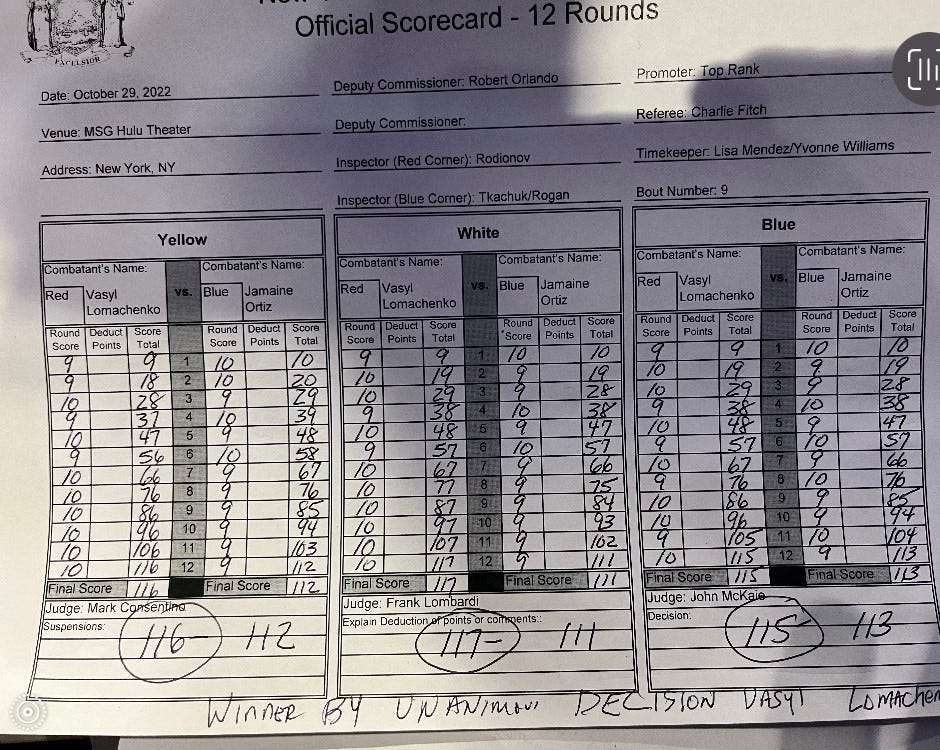 Official Scorecard - 12 Rounds
EXCELSIOR
Date: October 29, 2022
Deputy Commissioner: Robert Orlando
Promoter: Top Rank
Venue: MSG Hulu Theater
Deputy Commissioner:
Referee: Charlie Fitch
Address: New York, NY
Inspector (Red Corner): Rodionov
Timekeeper: Lisa Mendez/Yvonne Williams
Inspector (Blue Corner): Tkachuk/Rogan
Bout Number: 9
Yellow
Combatant's Name: Combatant's Name:
Red Vasyl Lomachenko vs. Blue Jamaine Ortiz
Round Score Deduct Points Score Total Round Score Deduct Points Score Total
9 9 1 10 10
9 18 2 10 20
10 28 3 9 29
9 37 4 10 39
10 47 5 9 48
9 56 6 10 58
10 66 7 9 67
10 76 8 9 76
10 86 9 9 85
10 96 10 9 94
10 106 11 9 103
10 116 12 9 112
Final Score 116 Final Score 112
Judge: Mark Consentino
Suspensions:
116- 112
White
Combatant's Name: Combatant's Name:
Red Vasyl Lomachenko vs. Blue Jamaine Ortiz
Round Score Deduct Points Score Total Round Score Deduct Points Score Total
9 9 1 10 10
10 19 2 9 19
10 29 3 9 28
9 38 4 10 38
10 48 5 9 47
9 57 6 10 57
10 67 7 9 66
10 77 8 9 75
10 87 9 9 84
10 97 10 9 93
10 107 11 9 102
10 117 12 9 111
Final Score 117 Final Score 111
Judge: Frank Lombardi
Explain Deduction of points or comments::
117- 111
Blue
Combatant's Name: Combatant's Name:
Red Vasyl Lomachenko vs. Blue Jamaine Ortiz
Round Score Deduct Points Score Total Round Score Deduct Points Score Total
9 9 1 10 10
10 19 2 9 19
10 29 3 9 28
9 38 4 10 38
10 48 5 9 47
9 57 6 10 57
10 67 7 9 66
9 76 8 10 76
10 86 9 9 85
10 96 10 9 94
9 105 11 10 104
10 115 12 9 113
Final Score 115 Final Score 113
Judge: John McKaie
Decision:
115- 113
WINNER BY UNANIMOUS DECISION VASYL LOMACHEN